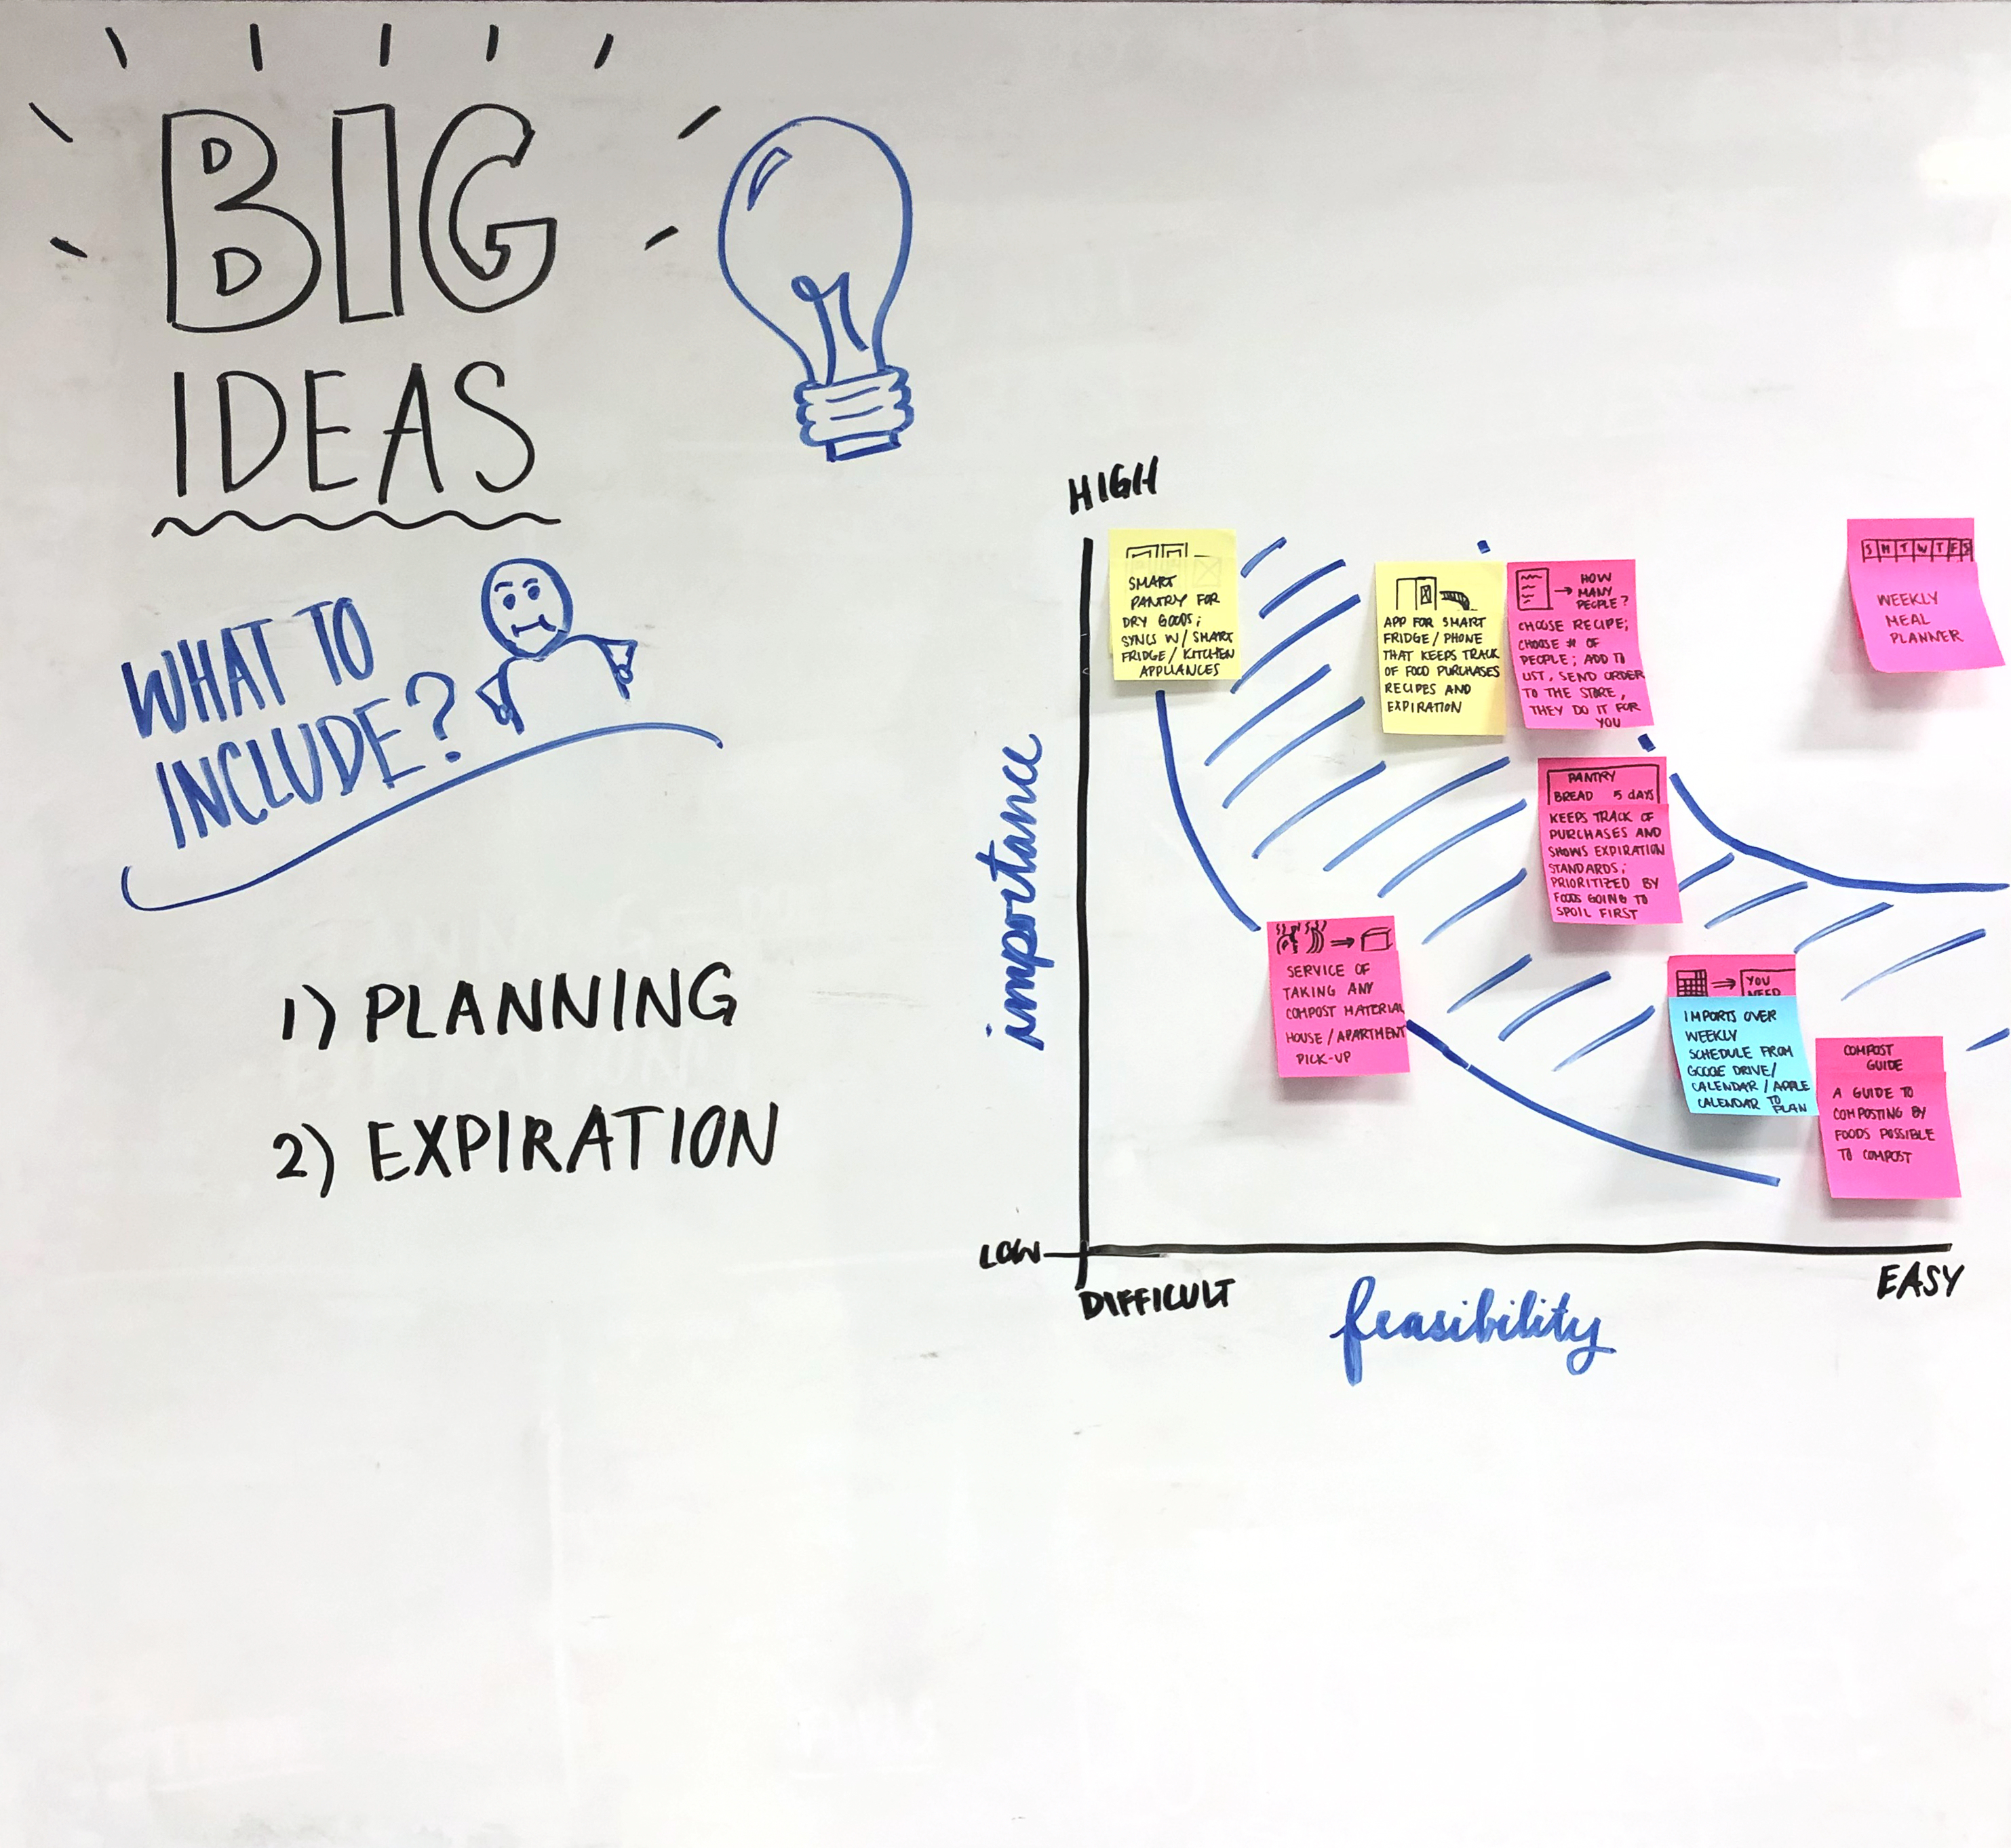 BIG
IDEAS
WHAT TO
INCLUDE?
1) PLANNING
2) EXPIRATION
HIGH
importance
LOW
DIFFICULT
feasibility
EASY
SMART
PANTRY FOR
DRY GOODS;
SYNCS W/ SMART
FRIDGE / KITCHEN
APPLIANCES
APP FOR SMART
FRIDGE / PHONE
THAT KEEPS TRACK
OF FOOD PURCHASES
RECIPES AND
EXPIRATION
HOW
MANY
PEOPLE?
CHOOSE RECIPE;
CHOOSE # OF
PEOPLE; ADD TO
LIST, SEND ORDER
TO THE STORE,
THEY DO IT FOR
YOU
S M T W T F S
WEEKLY
MEAL
PLANNER
PANTRY
BREAD 5 days
KEEPS TRACK OF
PURCHASES AND
SHOWS EXPIRATION
STANDARDS;
PRIORITIZED BY
FOODS GOING TO
SPOIL FIRST
SERVICE OF
TAKING ANY
COMPOST MATERIAL
HOUSE / APARTMENT
PICK-UP
YOU
NEED
IMPORTS OVER
WEEKLY
SCHEDULE FROM
GOOGE DRIVE/
CALENDAR / APPLE
CALENDAR TO PLAN
COMPOST
GUIDE
A GUIDE TO
COMPOSTING BY
FOODS POSSIBLE
TO COMPOST